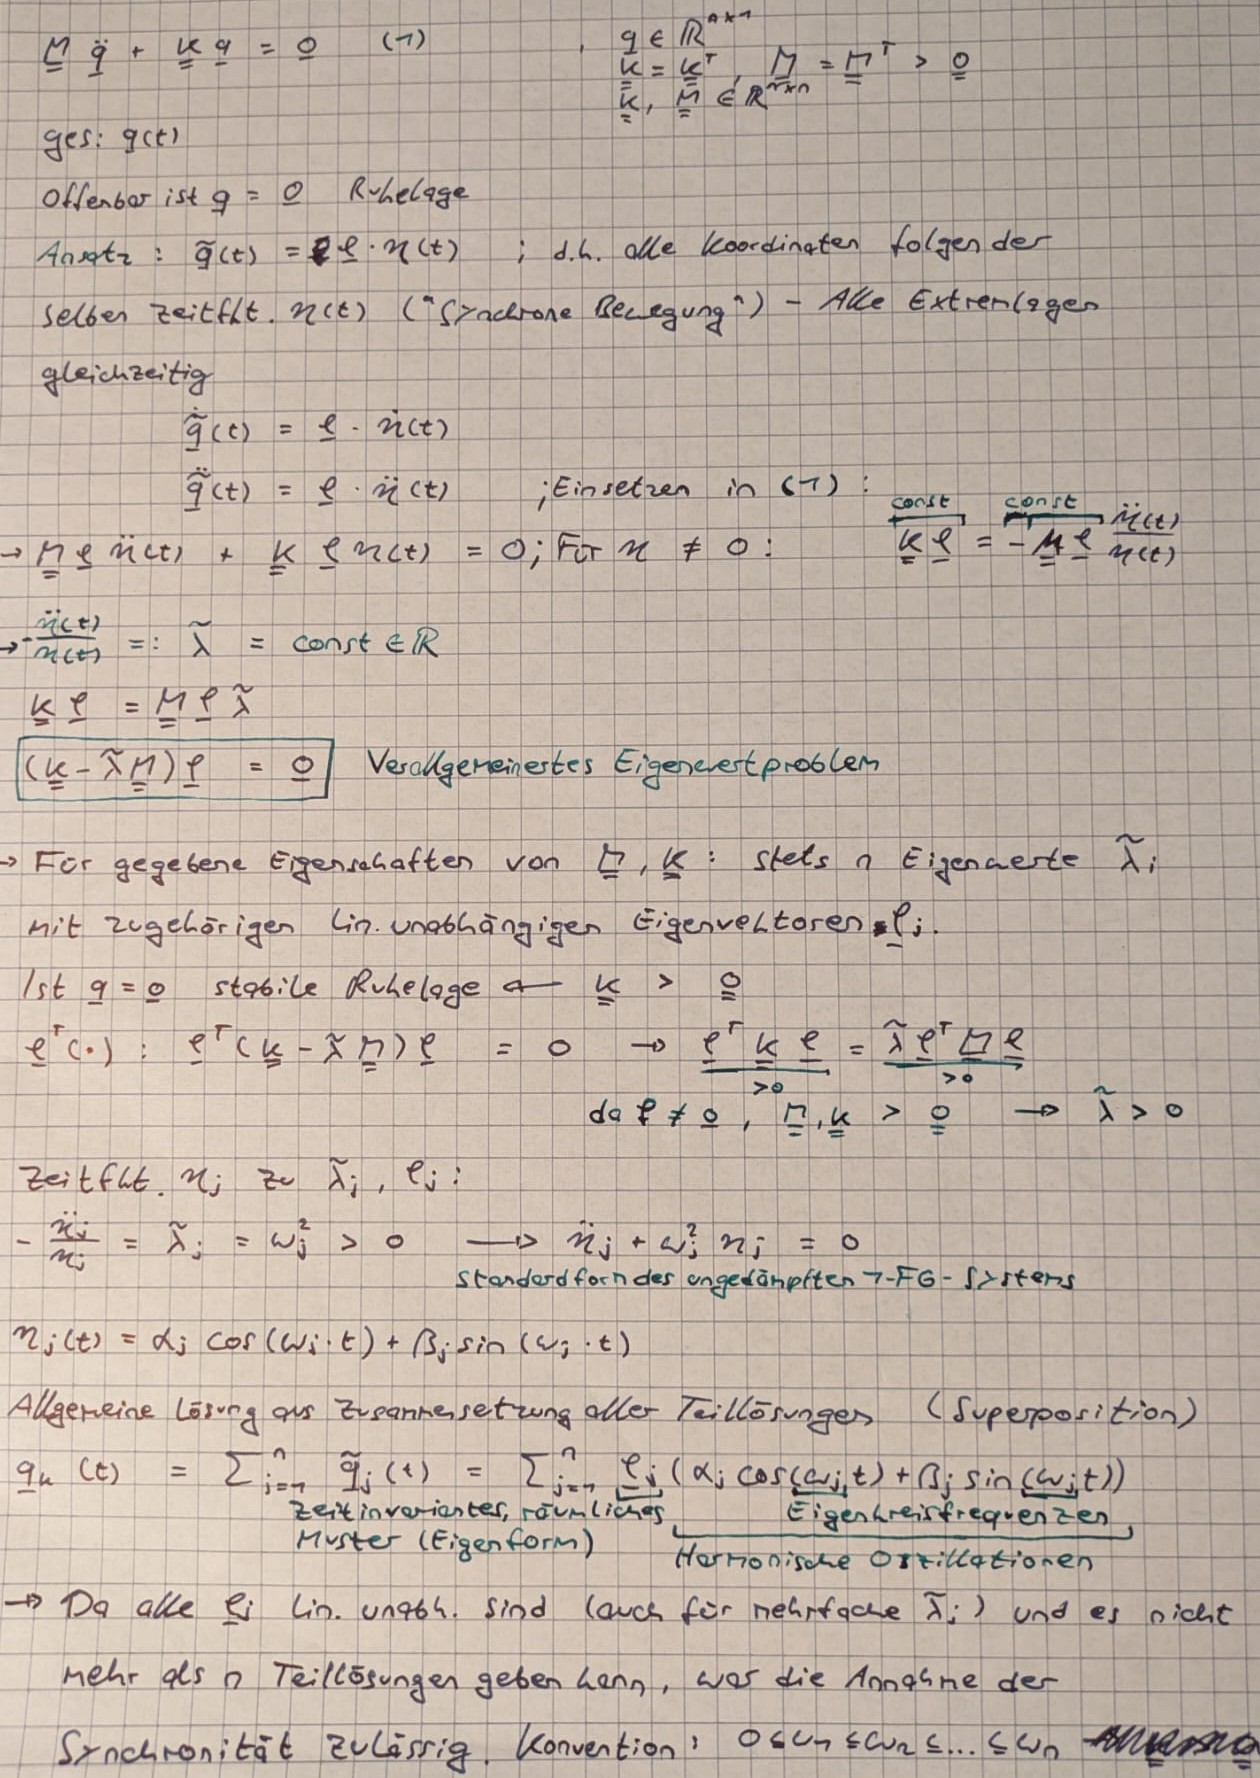 M q̈ + K q = 0 (1) , q ∈ ℝⁿˣ¹
K = Kᵀ, M = Mᵀ > 0
K, M ∈ ℝⁿˣⁿ
ges: q(t)
Offenbar ist q = 0 Ruhelage
Ansatz: q̃(t) = φ · η(t) ; d.h. alle Koordinaten folgen der
selben Zeitfkt. η(t) ("Synchrone Bewegung") - Alle Extremlagen
gleichzeitig
q̃̇(t) = φ · η̇(t)
q̃̈(t) = φ · η̈(t) ; Einsetzen in (1):
→ M φ η̈(t) + K φ η(t) = 0; Für η ≠ 0: K φ = - M φ η̈(t)/η(t)
const const
→ - η̈(t)/η(t) =: λ̃ = const ∈ ℝ
K φ = M φ λ̃
(K - λ̃ M) φ = 0 Verallgemeinertes Eigenwertproblem
→ Für gegebene Eigenschaften von M, K: stets n Eigenwerte λ̃ⱼ
mit zugehörigen lin. unabhängigen Eigenvektoren φⱼ.
Ist q = 0 stabile Ruhelage ← K > 0
φᵀ(·): φᵀ(K - λ̃ M) φ = 0 → φᵀ K φ = λ̃ φᵀ M φ
>0 >0
da φ ≠ 0, M, K > 0 → λ̃ > 0
Zeitfkt. ηⱼ zu λ̃ⱼ, φⱼ:
- η̈ⱼ/ηⱼ = λ̃ⱼ = ωⱼ² > 0 → η̈ⱼ + ωⱼ² ηⱼ = 0
Standardform des ungedämpften 1-FG-Systems
ηⱼ(t) = αⱼ cos(ωⱼ·t) + βⱼ sin(ωⱼ·t)
Allgemeine Lösung als Zusammensetzung aller Teillösungen (Superposition)
qₕ(t) = Σⱼ₌₁ⁿ q̃ⱼ(t) = Σⱼ₌₁ⁿ φⱼ (αⱼ cos(ωⱼt) + βⱼ sin(ωⱼt))
Zeitinvariantes, räumliches Eigenkreisfrequenzen
Muster (Eigenform) Harmonische Oszillationen
→ Da alle φⱼ lin. unabh. sind (auch für mehrfache λ̃ⱼ) und es nicht
mehr als n Teillösungen geben kann, war die Annahme der
Synchronität zulässig. Konvention: 0 ≤ ω₁ ≤ ω₂ ≤ ... ≤ ωₙ